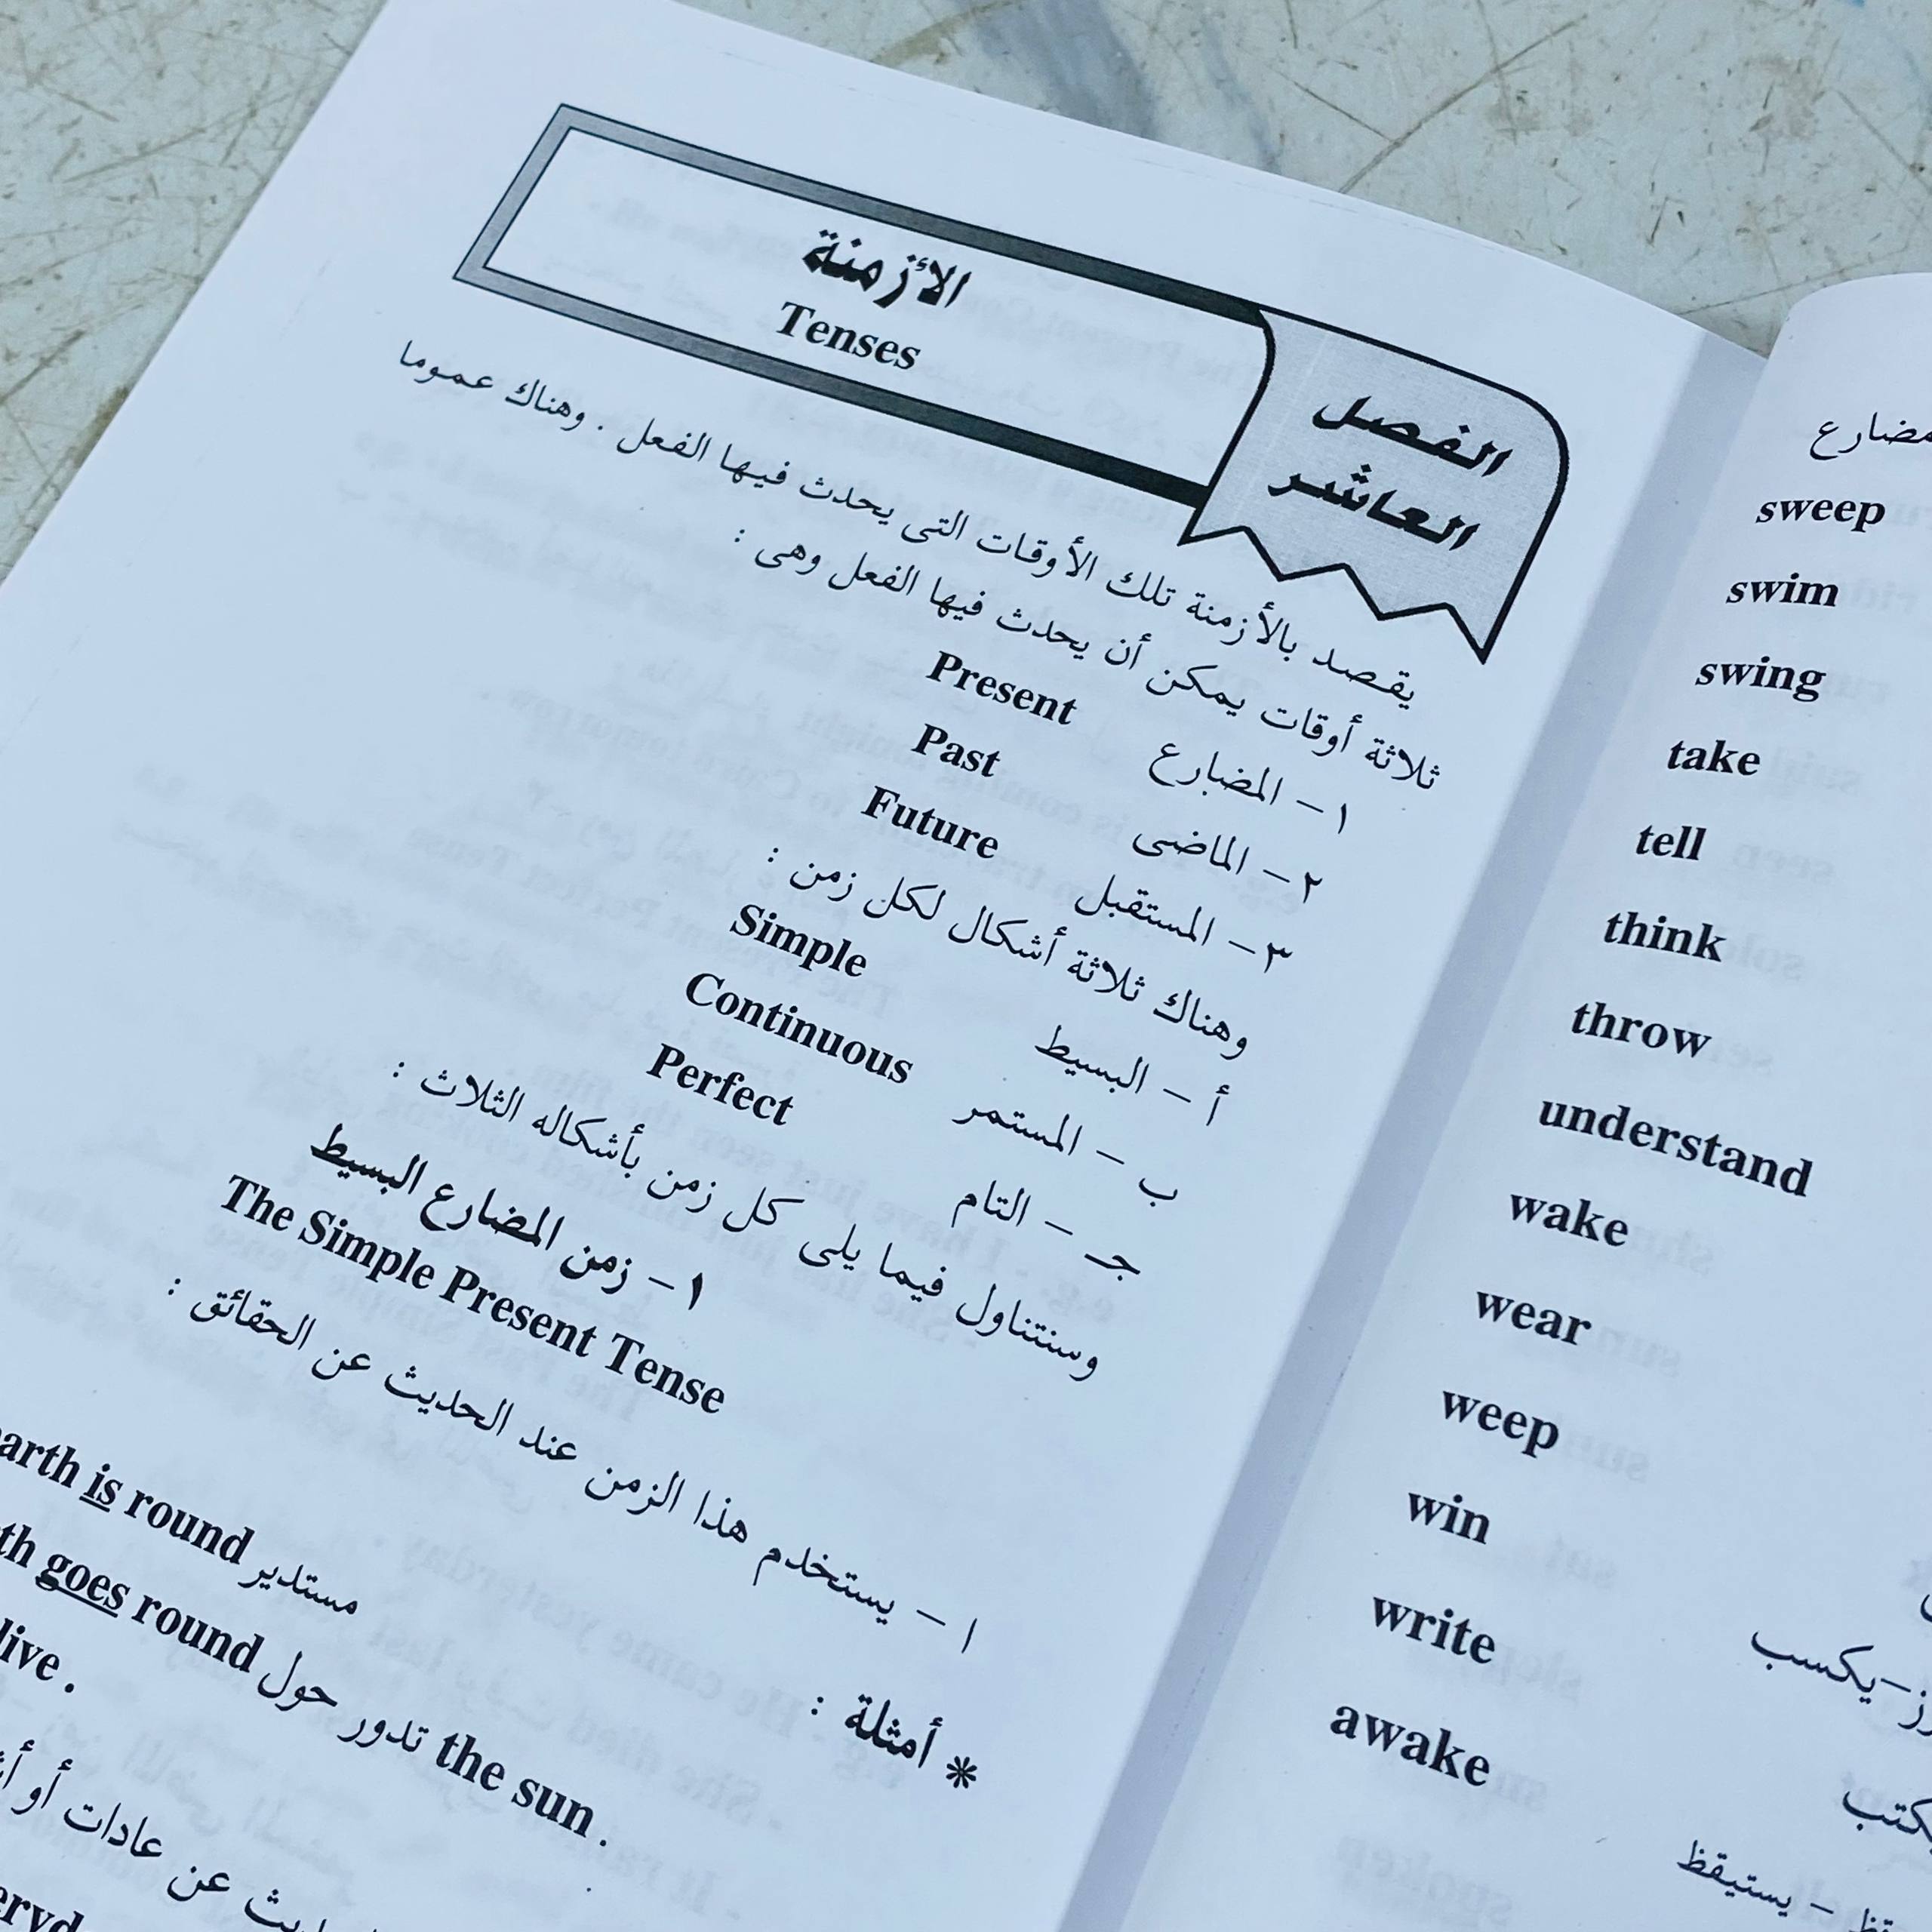 الفصل
العاشر
الأزمنة
Tenses
يقصد بالأزمنة تلك الأوقات التى يحدث فيها الفعل . وهناك عموما
ثلاثة أوقات يمكن أن يحدث فيها الفعل وهى :
١ – المضارع Present
٢ – الماضى Past
٣ – المستقبل Future
وهناك ثلاثة أشكال لكل زمن :
أ – البسيط Simple
ب – المستمر Continuous
جـ – التام Perfect
وسنتناول فيما يلى كل زمن بأشكاله الثلاث :
١ – زمن المضارع البسيط
The Simple Present Tense
ا – يستخدم هذا الزمن عند الحديث عن الحقائق :
* أمثلة :
is round مستدير
goes round تدور حول the sun .
live .
عن عادات أو
مضارع
sweep
swim
swing
take
tell
think
throw
understand
wake
wear
weep
win
write
awake
يكسب
يستيقظ